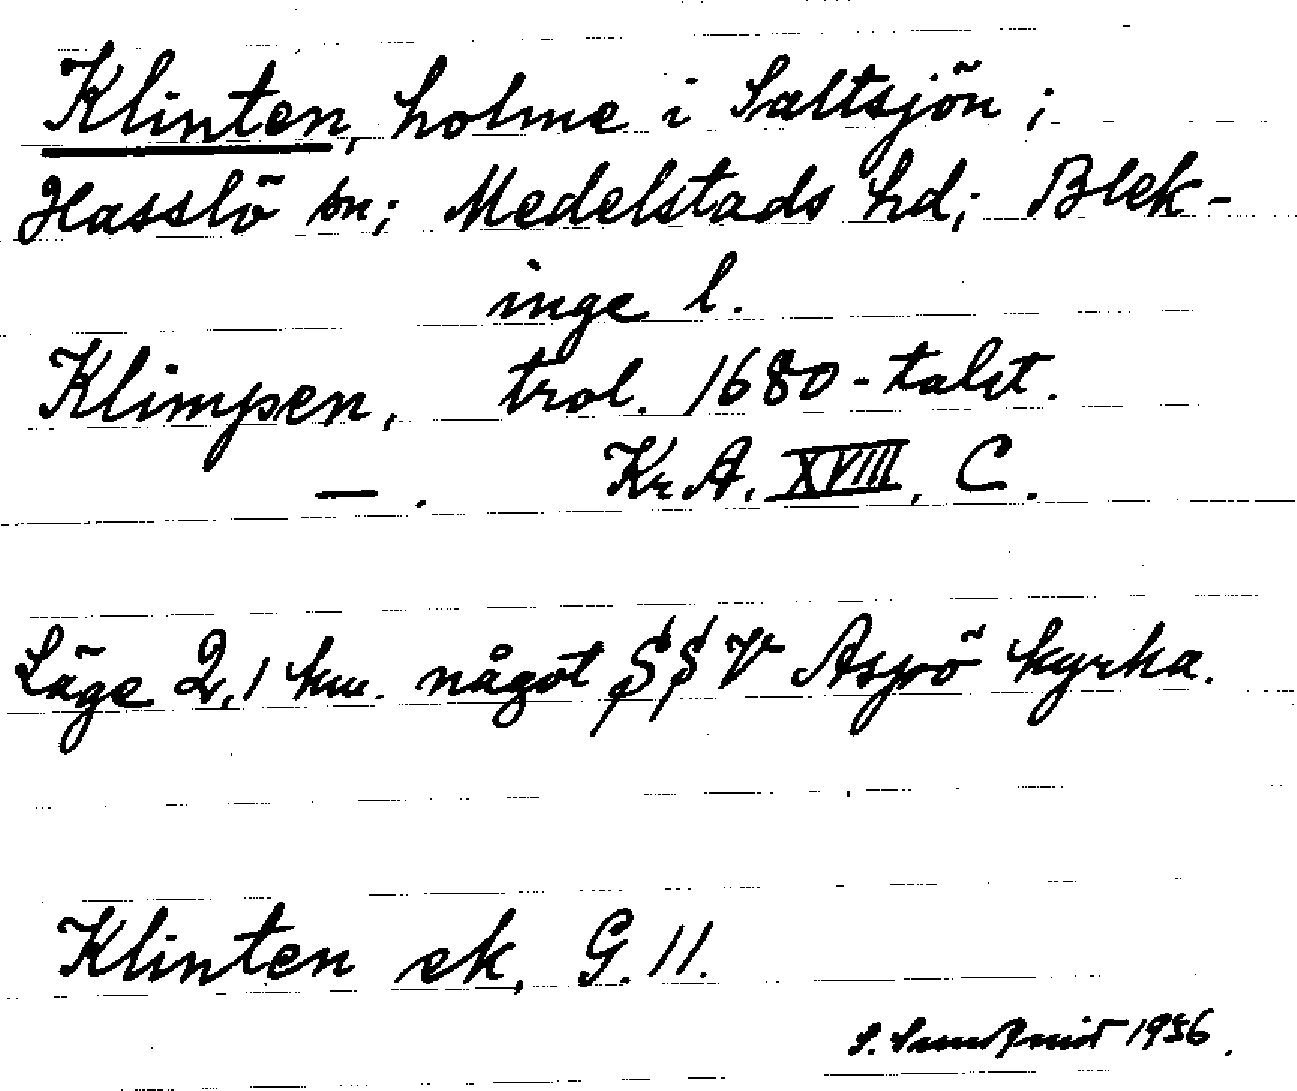 Klinten, holme i Saltsjön;
Hasslö sn; Medelstads hd; Blek-
inge l.
Klimpen, trol. 1680-talet.
— . Kr.A. XVIII, C.
Läge 2,1 km. något SSV Aspö kyrka.
Klinten ek, G.11.
S. 1956.